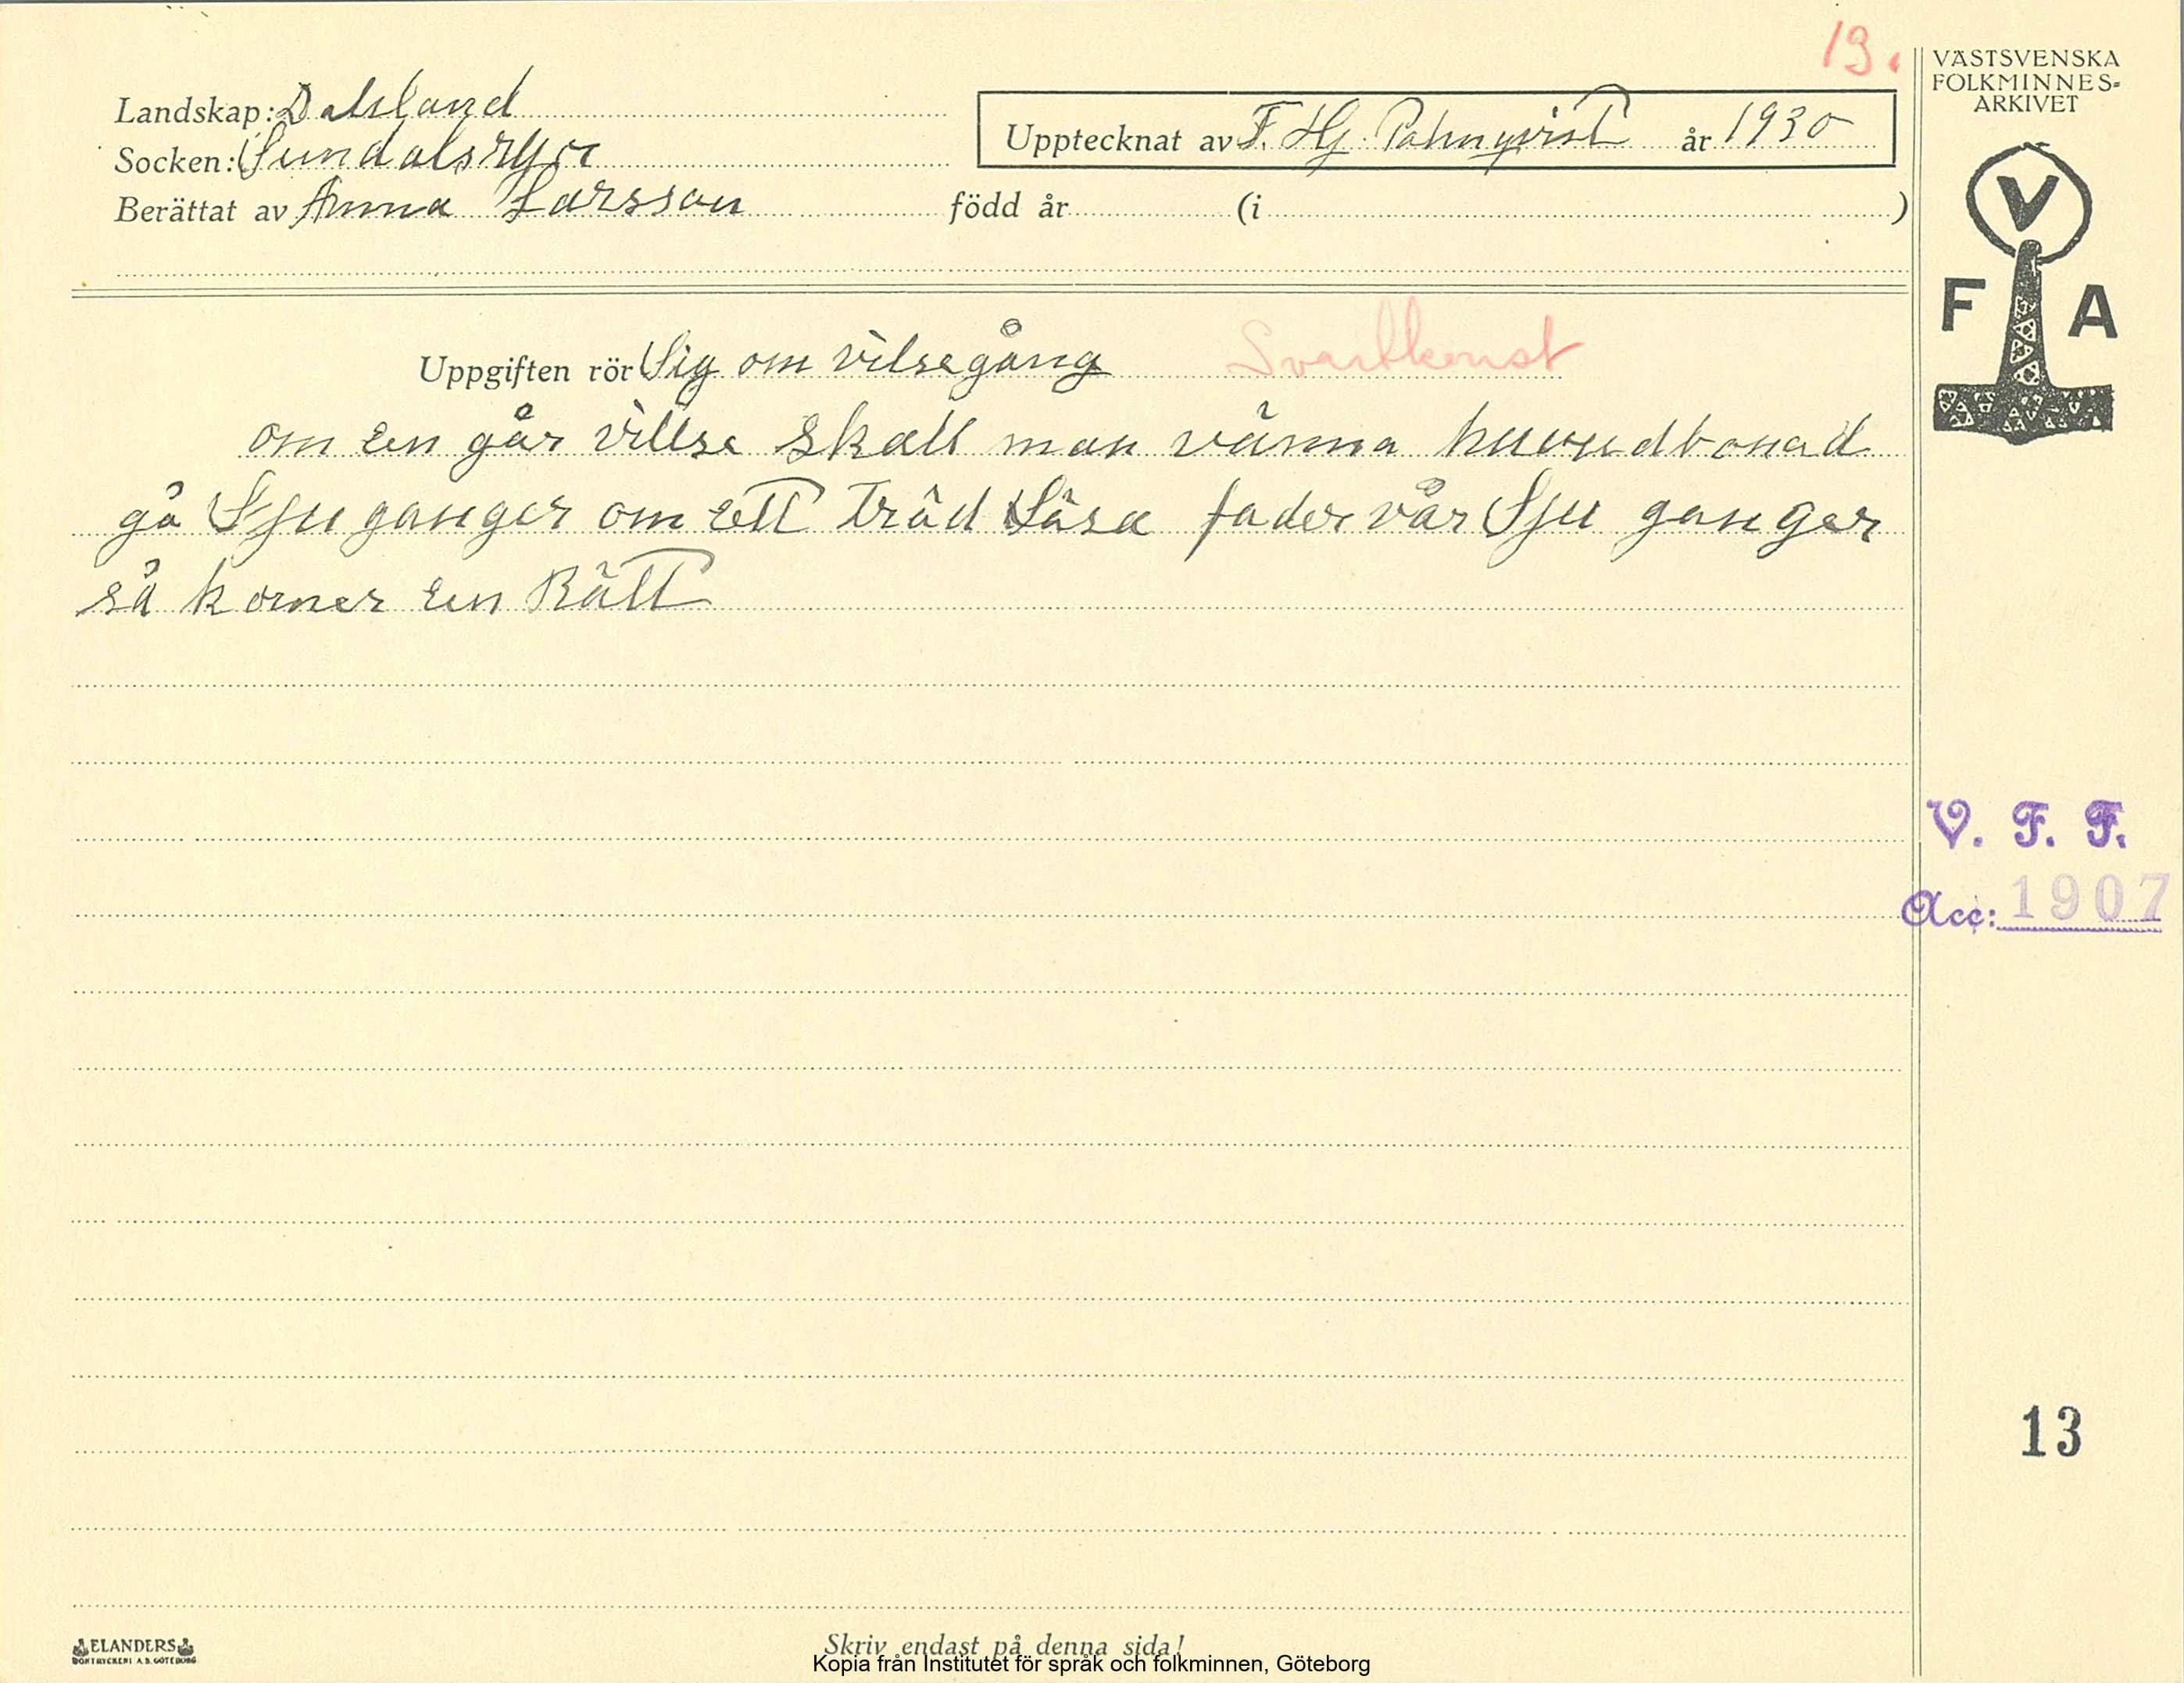 13.
VÄSTSVENSKA
FOLKMINNES-
ARKIVET
Landskap: Dalsland
Upptecknat av F. Hj. Palmqvist år 1930
Socken: Sundalsryr
Berättat av Anna Larsson född år (i )
V
F A
Uppgiften rör Sig om vilsegång Svartkonst
om en går villse skall man vänna huvudbonad
gå Sju ganger om ett träd Läsa fader vår Sju ganger
så komer en Rätt
V. F. F.
Acc: 1907
13
ELANDERS
BOKTRYCKERI A.B. GÖTEBORG
Skriv endast på denna sida!
Kopia från Institutet för språk och folkminnen, Göteborg